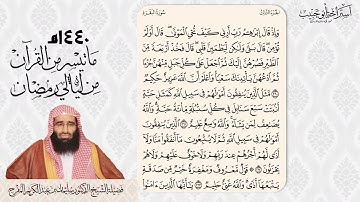 ١٤٤٠هـ
ما تيسر من القرآن
من ليالي رمضان
الجزء الثالث
سورة البقرة
وَإِذْ قَالَ إِبْرَٰهِـۧمُ رَبِّ أَرِنِي كَيْفَ تُحْيِ ٱلْمَوْتَىٰ ۖ قَالَ أَوَلَمْ
تُؤْمِن ۖ قَالَ بَلَىٰ وَلَٰكِن لِّيَطْمَئِنَّ قَلْبِي ۖ قَالَ فَخُذْ أَرْبَعَةً مِّنَ
ٱلطَّيْرِ فَصُرْهُنَّ إِلَيْكَ ثُمَّ ٱجْعَلْ عَلَىٰ كُلِّ جَبَلٍ مِّنْهُنَّ جُزْءًا
ثُمَّ ٱدْعُهُنَّ يَأْتِينَكَ سَعْيًا ۚ وَٱعْلَمْ أَنَّ ٱللَّهَ عَزِيزٌ حَكِيمٌ
مَّثَلُ ٱلَّذِينَ يُنفِقُونَ أَمْوَٰلَهُمْ فِي سَبِيلِ ٱللَّهِ كَمَثَلِ حَبَّةٍ
أَنۢبَتَتْ سَبْعَ سَنَابِلَ فِي كُلِّ سُنۢبُلَةٍ مِّا۟ئَةُ حَبَّةٍ ۗ وَٱللَّهُ
يُضَٰعِفُ لِمَن يَشَآءُ ۗ وَٱللَّهُ وَٰسِعٌ عَلِيمٌ ٱلَّذِينَ يُنفِقُونَ
أَمْوَٰلَهُمْ فِي سَبِيلِ ٱللَّهِ ثُمَّ لَا يُتْبِعُونَ مَآ أَنفَقُوا۟ مَنًّا وَلَآ
أَذًى ۙ لَّهُمْ أَجْرُهُمْ عِندَ رَبِّهِمْ وَلَا خَوْفٌ عَلَيْهِمْ وَلَا هُمْ
يَحْزَنُونَ قَوْلٌ مَّعْرُوفٌ وَمَغْفِرَةٌ خَيْرٌ مِّن صَدَقَةٍ
يَتْبَعُهَآ أَذًى ۗ وَٱللَّهُ غَنِيٌّ حَلِيمٌ يَٰٓأَيُّهَا ٱلَّذِينَ ءَامَنُوا۟